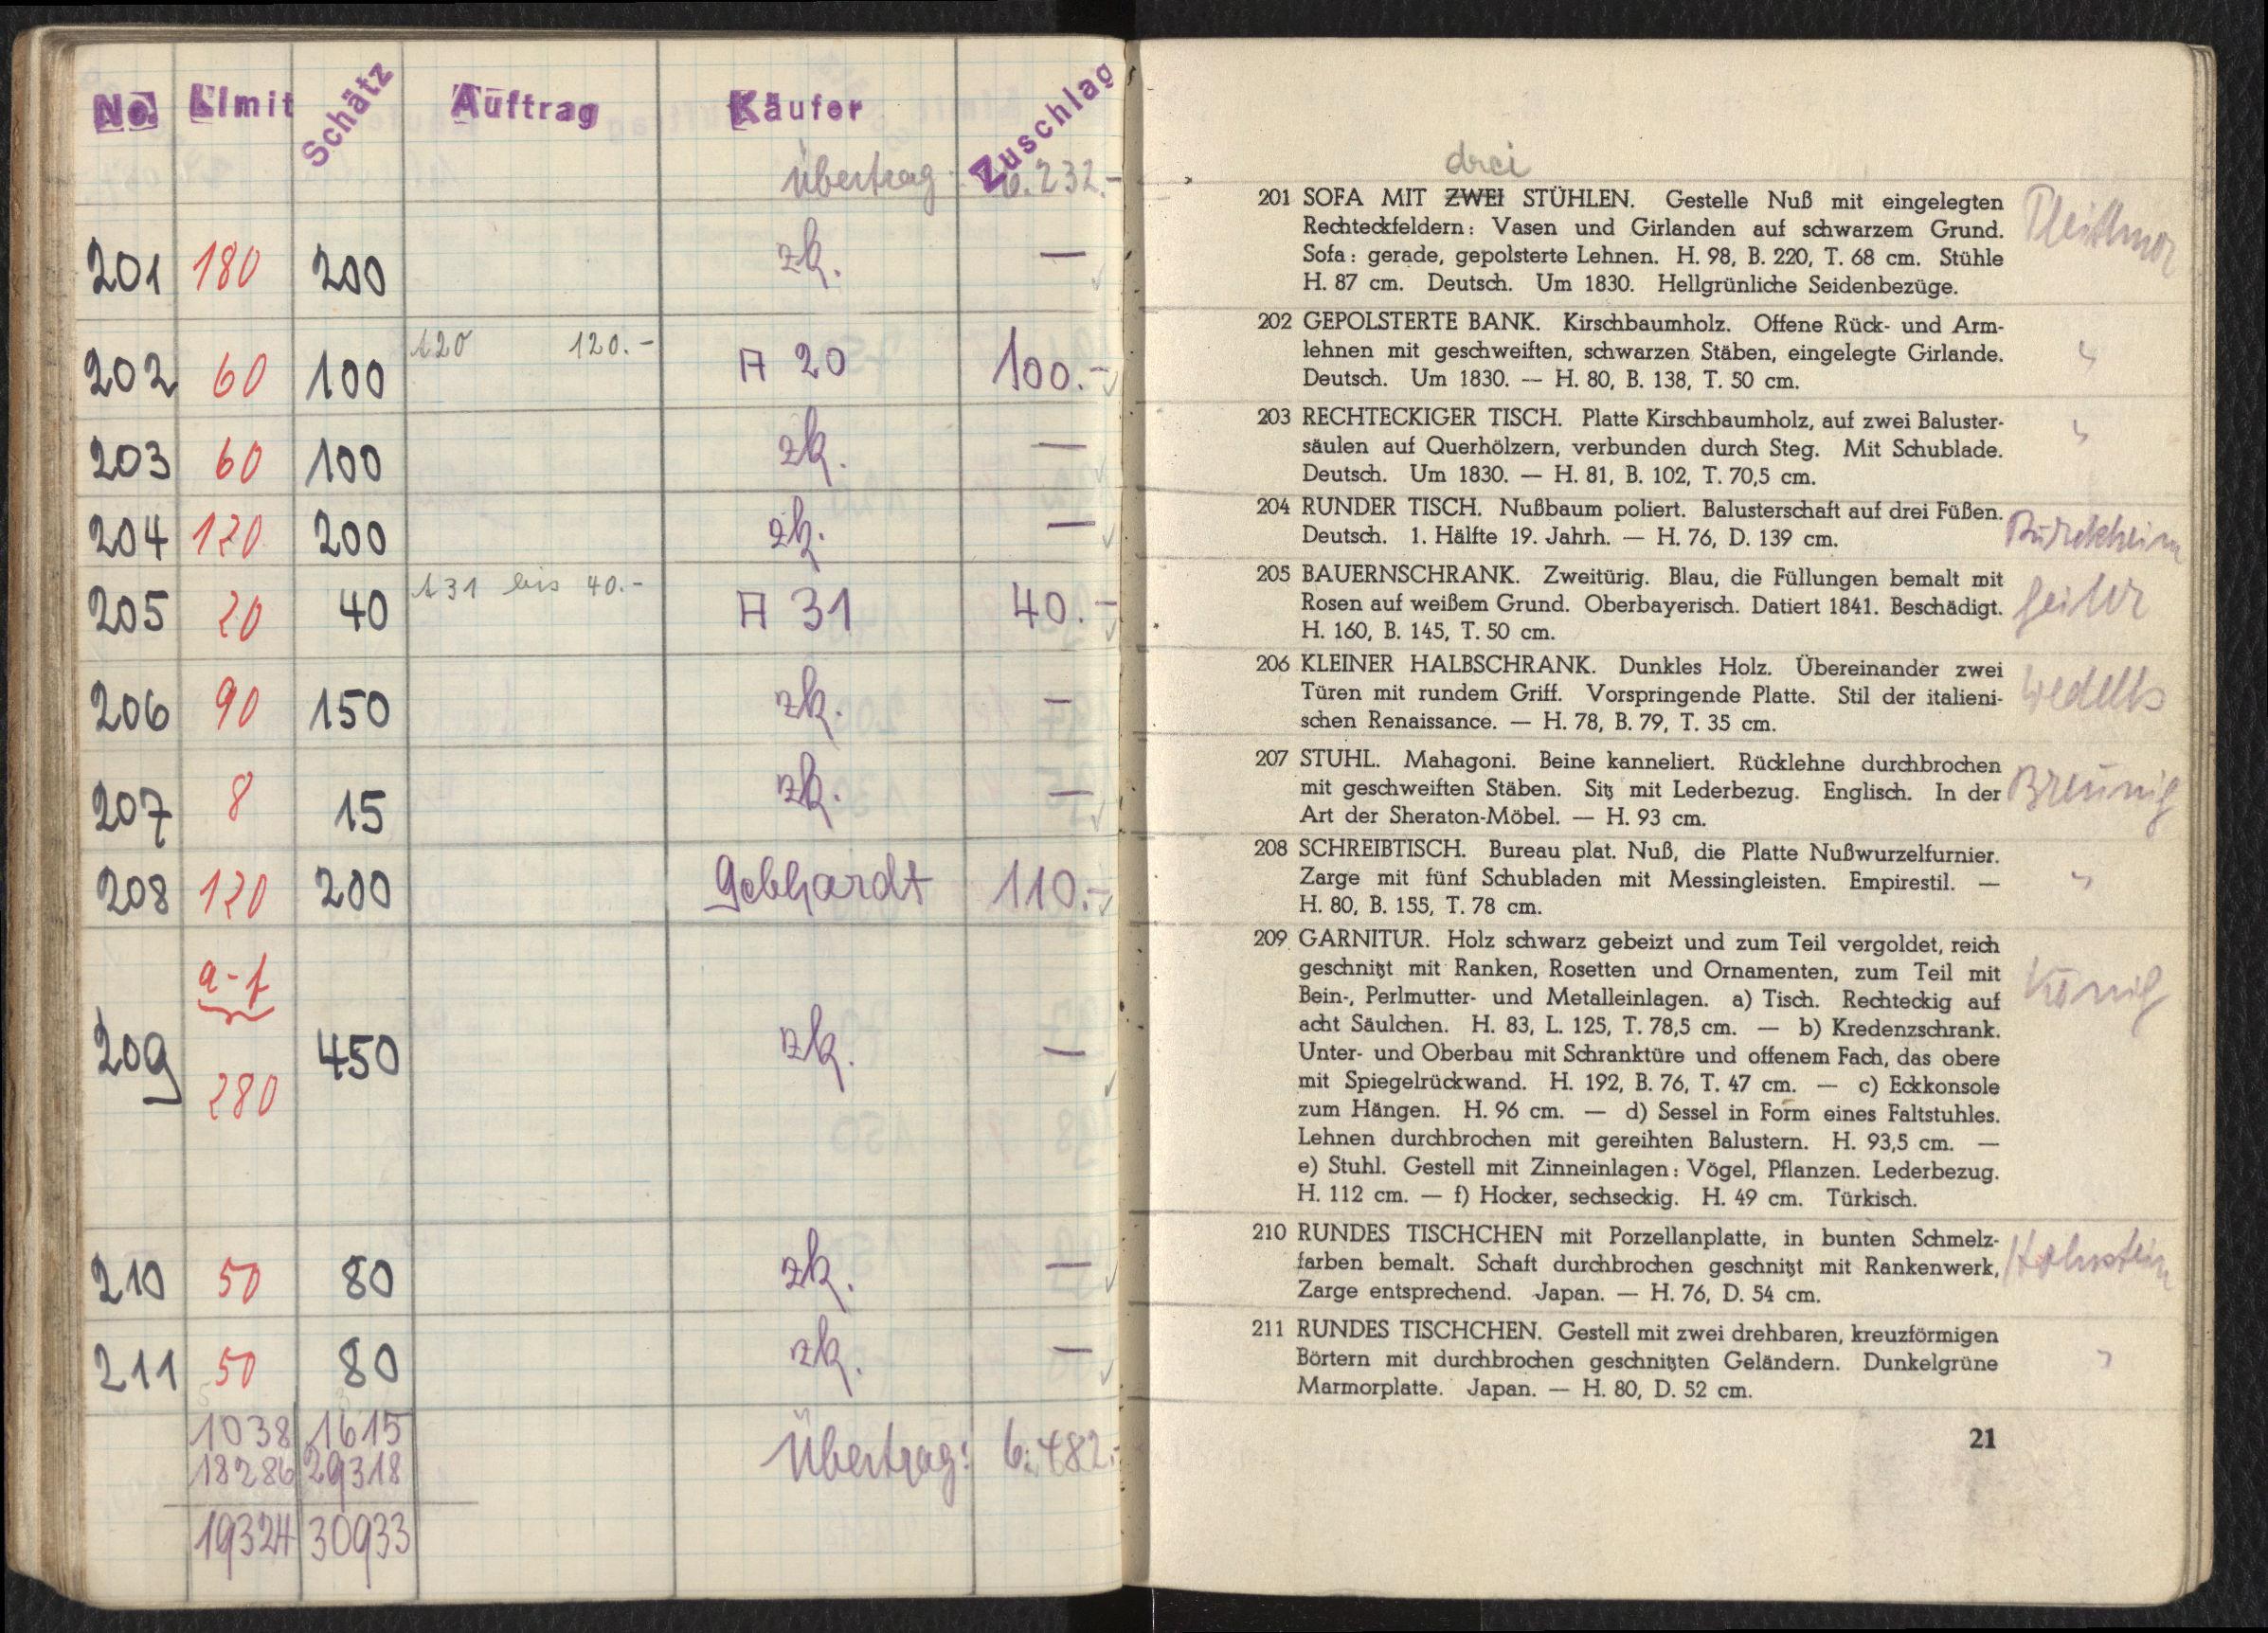 No. Limit Schätz Auftrag Käufer Zuschlag
Übertrag 6.232.-
201 180 200 zk. —
202 60 100 A20 120.- A 20 100.-
203 60 100 zk. —
204 120 200 zk. —
205 20 40 A31 bis 40.- A 31 40.-
206 90 150 zk. —
207 8 15 zk. —
208 120 200 Gebhardt 110.-
209 a-f 280 450 zk. —
210 50 80 zk. —
211 50 80 zk. —
1038 1615 Übertrag: 6.482.-
18286 29318
19324 30933
drei
201 SOFA MIT ZWEI STÜHLEN. Gestelle Nuß mit eingelegten
Rechteckfeldern: Vasen und Girlanden auf schwarzem Grund.
Sofa: gerade, gepolsterte Lehnen. H. 98, B. 220, T. 68 cm. Stühle
H. 87 cm. Deutsch. Um 1830. Hellgrünliche Seidenbezüge.
202 GEPOLSTERTE BANK. Kirschbaumholz. Offene Rück- und Arm-
lehnen mit geschweiften, schwarzen Stäben, eingelegte Girlande.
Deutsch. Um 1830. — H. 80, B. 138, T. 50 cm.
203 RECHTECKIGER TISCH. Platte Kirschbaumholz, auf zwei Baluster-
säulen auf Querhölzern, verbunden durch Steg. Mit Schublade.
Deutsch. Um 1830. — H. 81, B. 102, T. 70,5 cm.
204 RUNDER TISCH. Nußbaum poliert. Balusterschaft auf drei Füßen.
Deutsch. 1. Hälfte 19. Jahrh. — H. 76, D. 139 cm.
205 BAUERNSCHRANK. Zweitürig. Blau, die Füllungen bemalt mit
Rosen auf weißem Grund. Oberbayerisch. Datiert 1841. Beschädigt.
H. 160, B. 145, T. 50 cm.
206 KLEINER HALBSCHRANK. Dunkles Holz. Übereinander zwei
Türen mit rundem Griff. Vorspringende Platte. Stil der italieni-
schen Renaissance. — H. 78, B. 79, T. 35 cm.
207 STUHL. Mahagoni. Beine kanneliert. Rücklehne durchbrochen
mit geschweiften Stäben. Sitz mit Lederbezug. Englisch. In der
Breünig
Art der Sheraton-Möbel. — H. 93 cm.
208 SCHREIBTISCH. Bureau plat. Nuß, die Platte Nußwurzelfurnier.
Zarge mit fünf Schubladen mit Messingleisten. Empirestil. —
H. 80, B. 155, T. 78 cm.
209 GARNITUR. Holz schwarz gebeizt und zum Teil vergoldet, reich
geschnitzt mit Ranken, Rosetten und Ornamenten, zum Teil mit
König
Bein-, Perlmutter- und Metalleinlagen. a) Tisch. Rechteckig auf
acht Säulchen. H. 83, L. 125, T. 78,5 cm. — b) Kredenzschrank.
Unter- und Oberbau mit Schranktüre und offenem Fach, das obere
mit Spiegelrückwand. H. 192, B. 76, T. 47 cm. — c) Eckkonsole
zum Hängen. H. 96 cm. — d) Sessel in Form eines Faltstuhles.
Lehnen durchbrochen mit gereihten Balustern. H. 93,5 cm. —
e) Stuhl. Gestell mit Zinneinlagen: Vögel, Pflanzen. Lederbezug.
H. 112 cm. — f) Hocker, sechseckig. H. 49 cm. Türkisch.
210 RUNDES TISCHCHEN mit Porzellanplatte, in bunten Schmelz-
farben bemalt. Schaft durchbrochen geschnitzt mit Rankenwerk,
Zarge entsprechend. Japan. — H. 76, D. 54 cm.
211 RUNDES TISCHCHEN. Gestell mit zwei drehbaren, kreuzförmigen
Börtern mit durchbrochen geschnitzten Geländern. Dunkelgrüne
Marmorplatte. Japan. — H. 80, D. 52 cm.
21